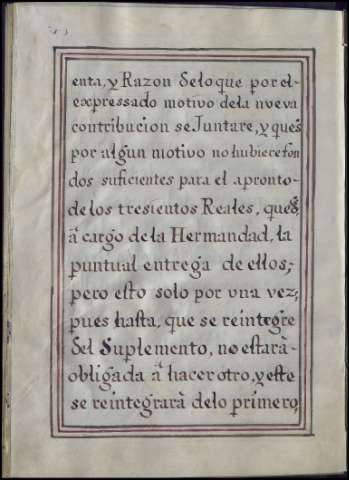 enta, y Razon deloque por el-
expressado motivo dela nueva
contribucion se Juntare, y que si
por algun motivo no hubiere fon
dos suficientes para el apronto-
de los tresientos Reales, queda
â cargo de la Hermandad, la
puntual entrega de ellos;
pero esto solo por vna vez;
pues hasta, que se reintegre
del Suplemento, no estarà-
obligada â hacer otro, y este
se reintegrarà delo primero,